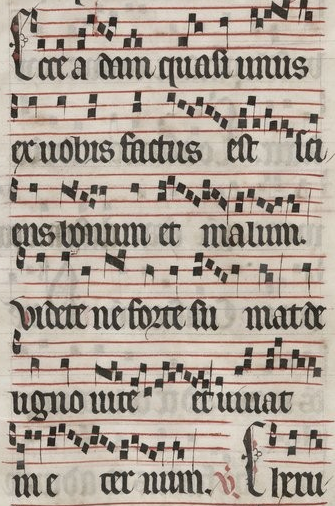 Ecce adam quasi unus
ex uobis factus est sci
ens bonum et malum.
Videte ne forte su mat de
ligno uite et uiuat
in e ter num. ℣.